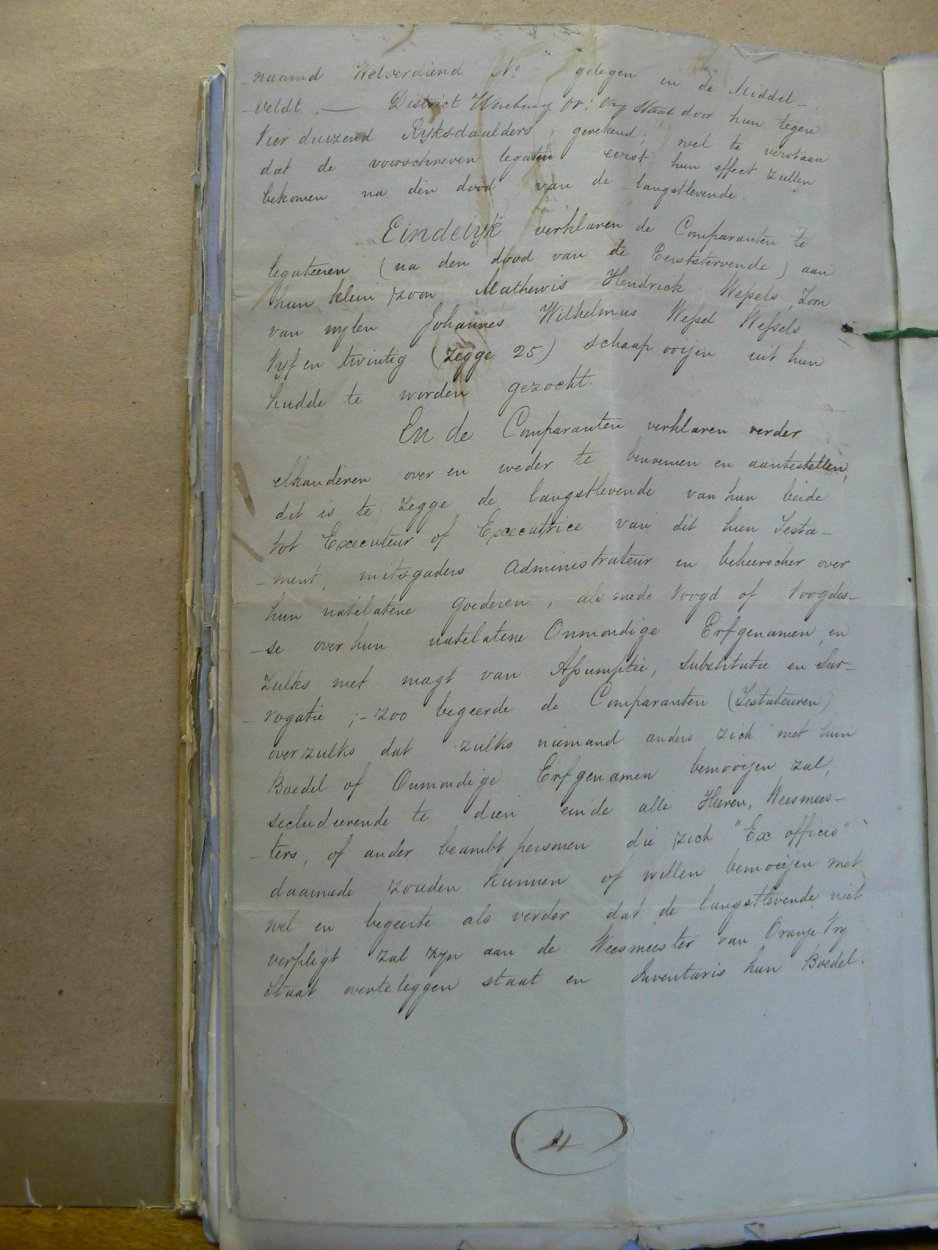 -naamd Welverdiend No gelegen in de Middel-
-veldt — District Winburg Or: Vry Staat door hun tegen
Vier duizend Ryksdaalders gerekend; wel te verstaan
dat de voorschreven legaten eerst hun effect zullen
bekomen na den dood van de langstlevende.
Eindelyk verklaren de Comparanten te
legateeren (na den dood van de Eerststervende) aan
hun klein zoon Mathewis Hendrick Wessels, Zoon
van wylen Johannes Wilhelmus Wessel Wessels
Vyf en twintig (zegge 25) schaap ooijen uit hun
kudde te worden gezocht.
En de Comparanten verklaren verder
elkanderen over en weder te benoemen en aantestellen,
dit is te zegge de langstlevende van hun beide
tot Executeur of Executrice van dit hun Testa-
-ment, mitsgaders Administrateur en beheerscher over
hun natelatene goederen, als mede Voogd of Voogdes-
-se over hun natelatene Onmondige Erfgenamen, en
zulks met magt van Assumptie, Substitutie en Sur-
-rogatie;- zoo begeerde de Comparanten (Testateuren)
overzulks dat zulks niemand anders zich met hun
Boedel of Onmondige Erfgenamen bemooijen zal,
secludeerende te dien einde alle Heeren, Weesmees-
-ters, of ander beambt personen die zich "Ex officio"
daarmede zouden kunnen of willen bemoeijen met
wel en begeerte als verder dat de langstlevende niet
verpligt zal zyn aan de Weesmeester van Oranje Vry
Staat overteleggen staat en Inventaris hun Boedel.
4